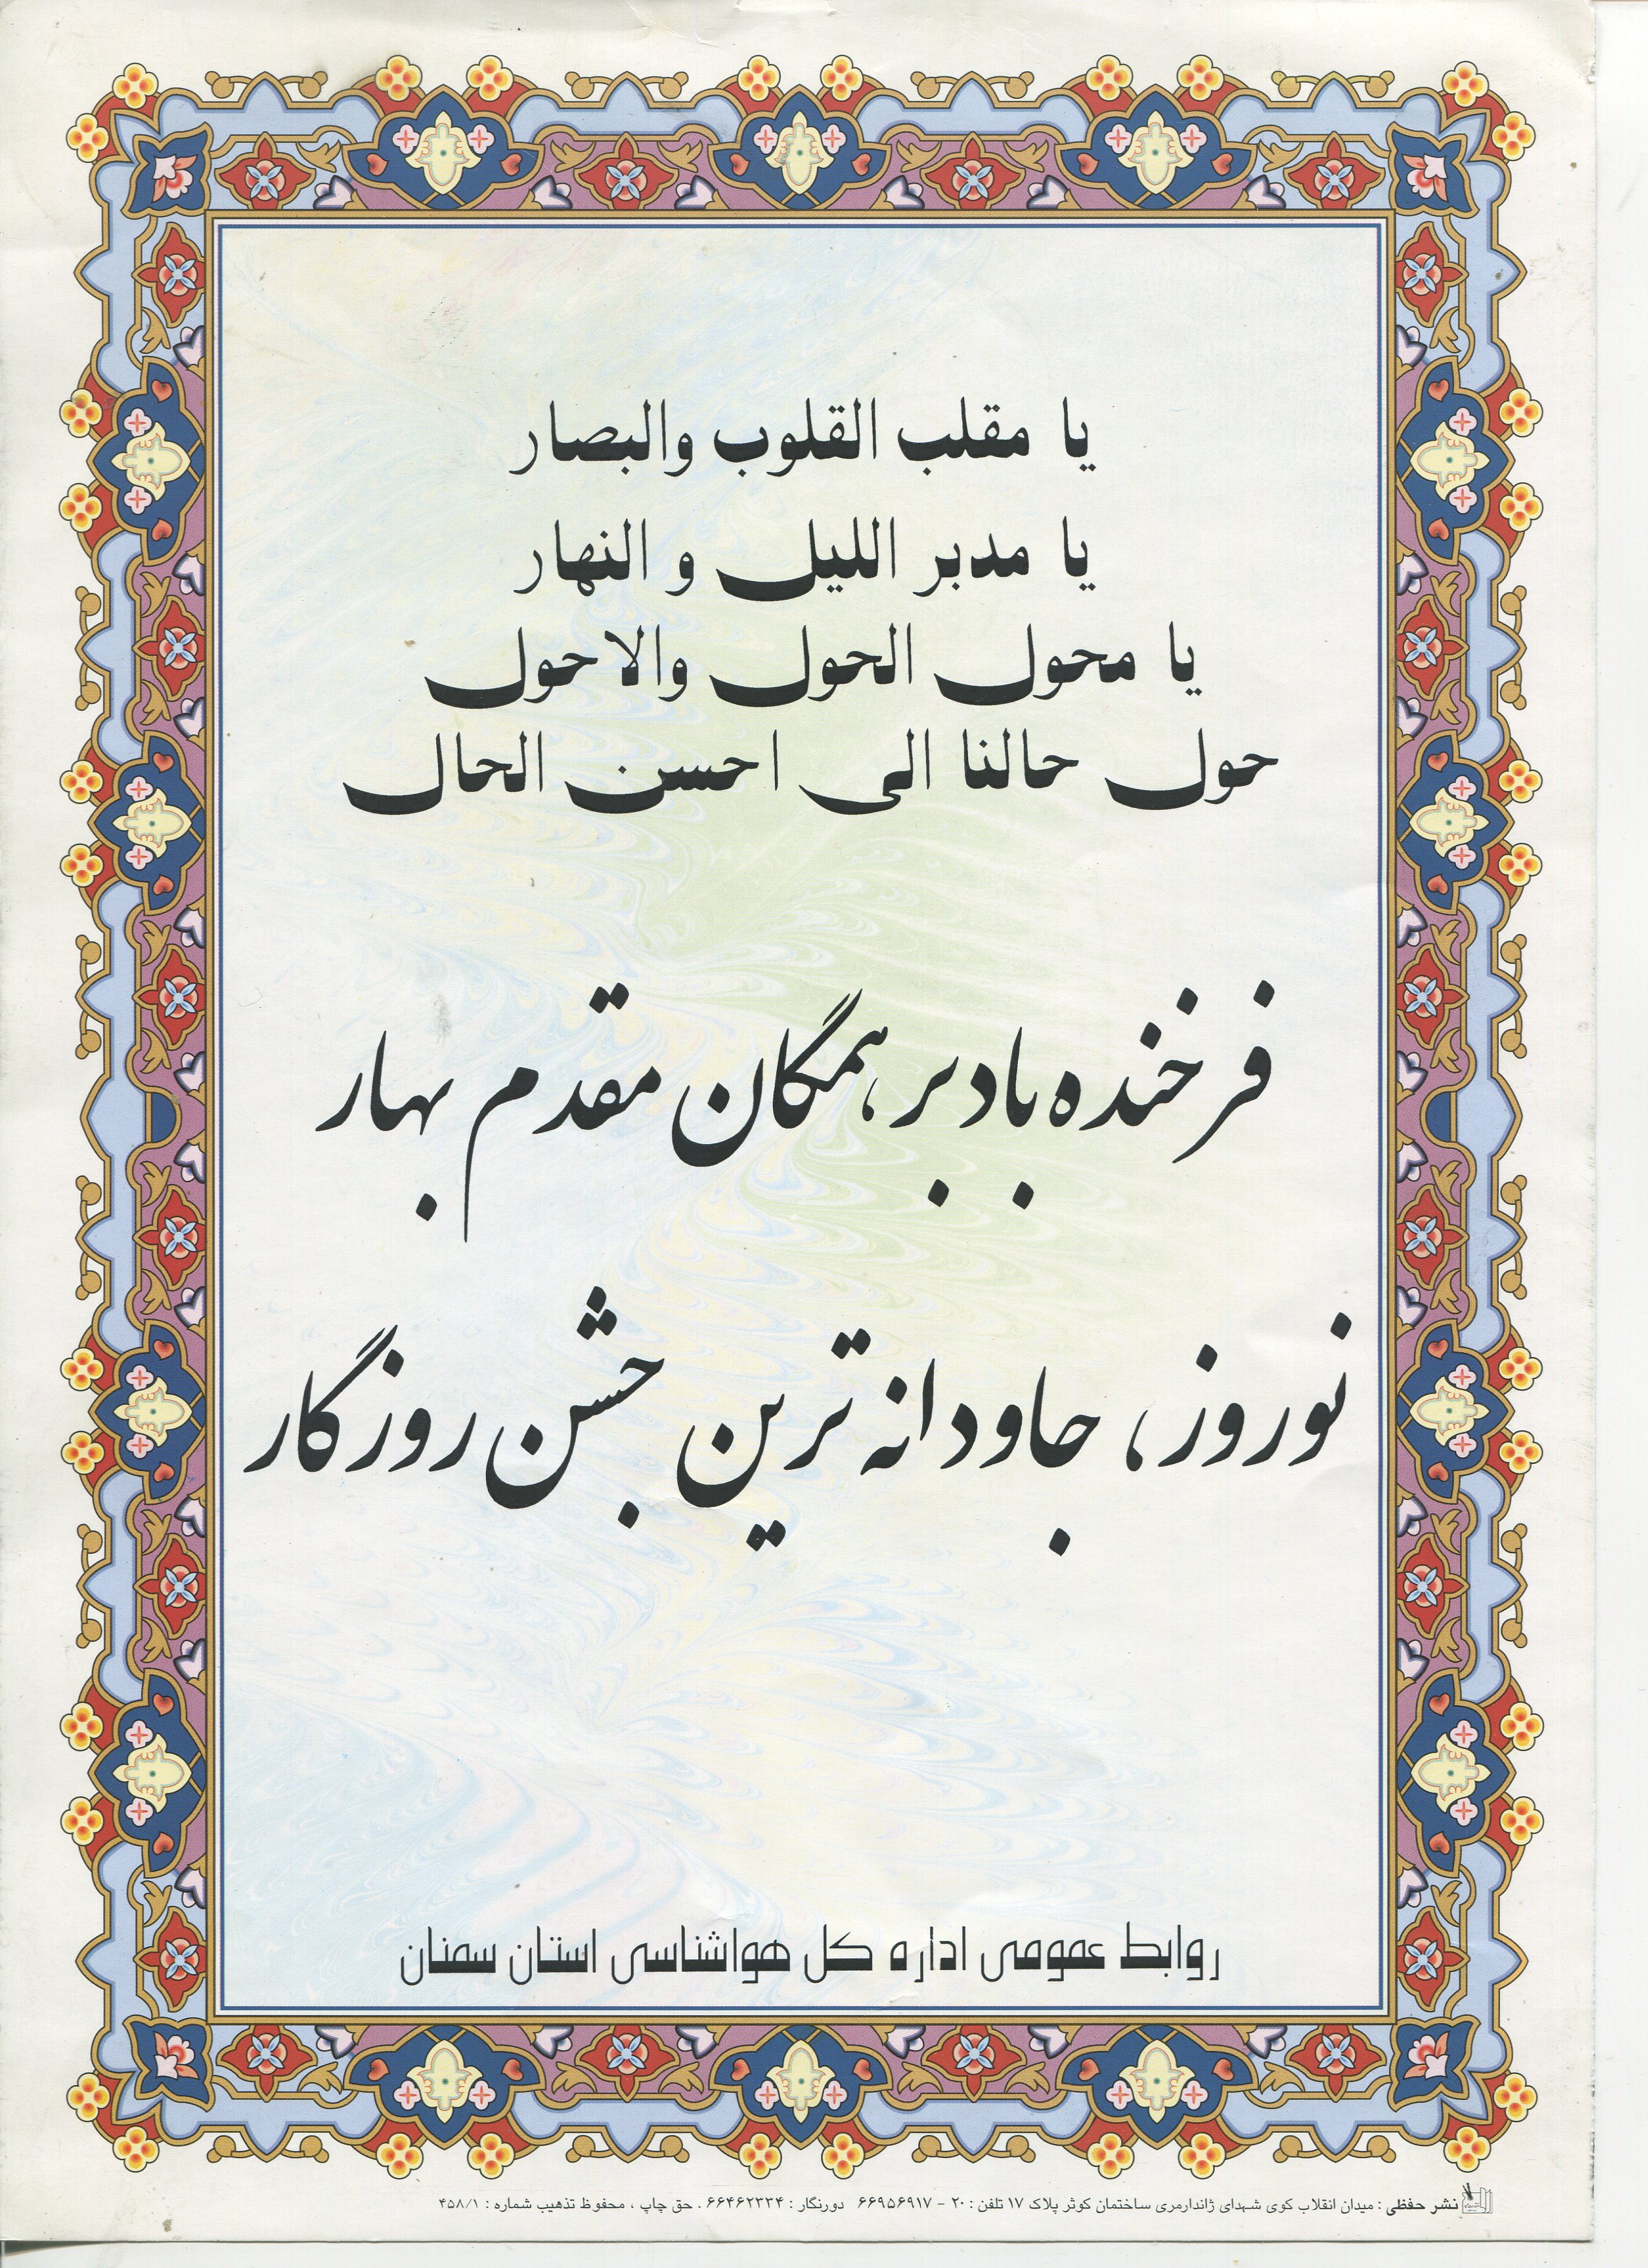 يا مقلب القلوب والبصار
يا مدبر الليل و النهار
يا محول الحول والاحول
حول حالنا الى احسن الحال
فرخنده باد بر همگان مقدم بهار
نوروز، جاودانه ترین جشن روزگار
روابط عمومی اداره کل هواشناسی استان سمنان
نشر حفظی : میدان انقلاب کوی شهدای ژاندارمری ساختمان کوثر پلاک ۱۷ تلفن : ۲۰ - ۶۶۹۵۶۹۱۷ دورنگار : ۶۶۴۶۲۳۳۴ . حق چاپ ، محفوظ تذهیب شماره : ۴۵۸/۱